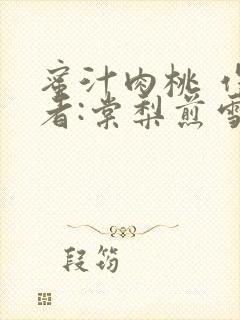 蜜汁肉桃 作
者:棠梨煎雪
段筠